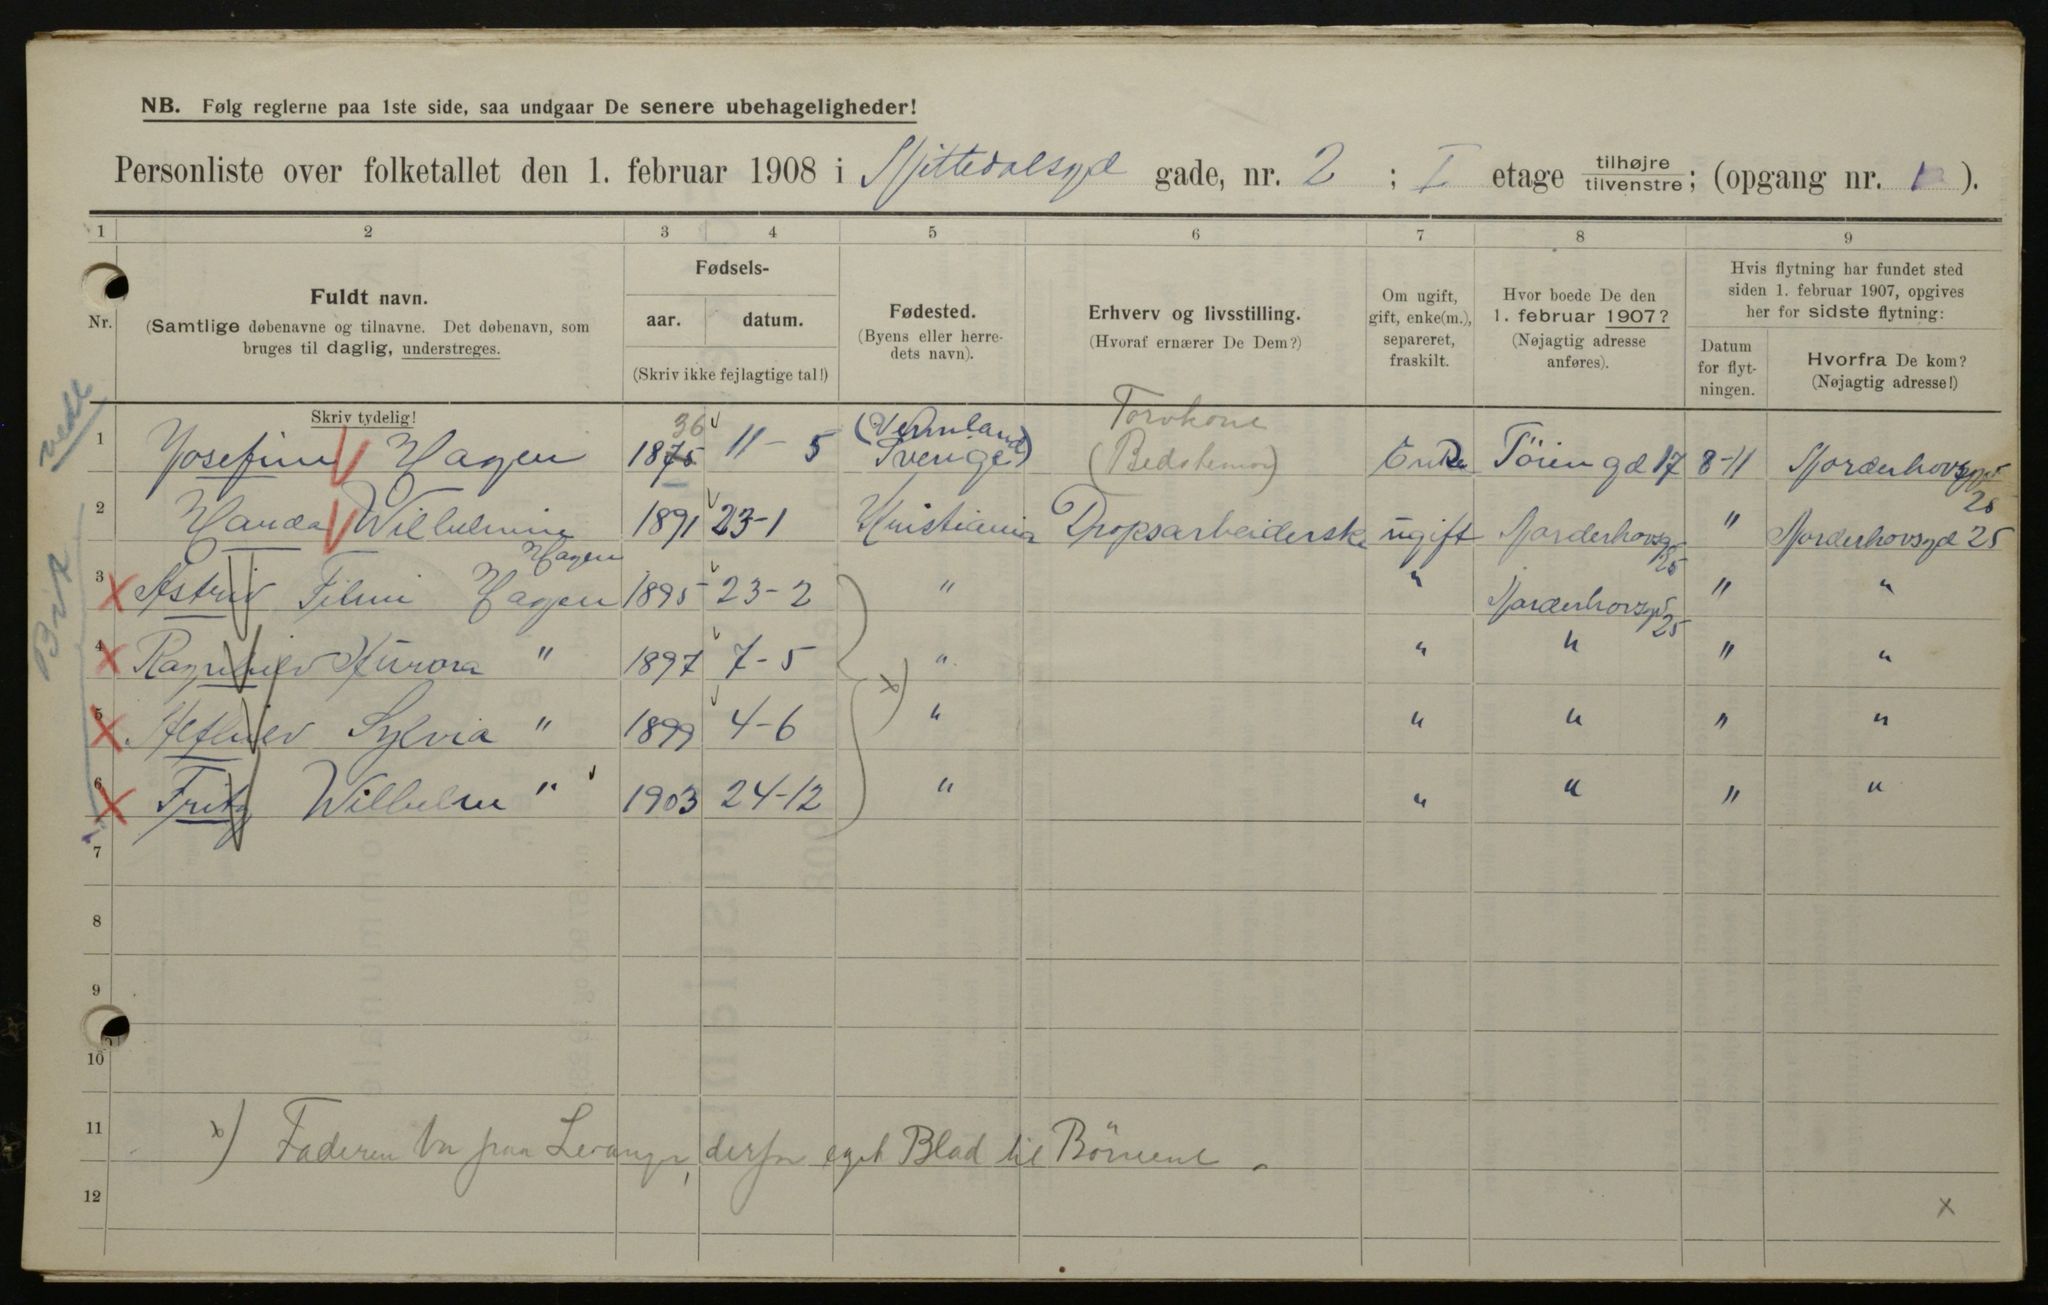 NB. Følg reglerne paa 1ste side, saa undgaar De senere ubehageligheder!
Personliste over folketallet den 1. februar 1908 i Nittedalsgd gade, nr. 2 ; I etage tilhøjre/tilvenstre; (opgang nr. 1 ).
1 2 3 4 5 6 7 8 9
Nr.
Fuldt navn.
(Samtlige døbenavne og tilnavne. Det døbenavn, som
bruges til daglig, understreges.
Skriv tydelig!
Fødsels-
aar. datum.
(Skriv ikke fejlagtige tal!)
Fødested.
(Byens eller herre-
dets navn).
Erhverv og livsstilling.
(Hvoraf ernærer De Dem?)
Om ugift,
gift, enke(m.),
separeret,
fraskilt.
Hvor boede De den
1. februar 1907?
(Nøjagtig adresse
anføres).
Hvis flytning har fundet sted
siden 1. februar 1907, opgives
her for sidste flytning:
Datum
for flyt-
ningen.
Hvorfra De kom?
(Nøjagtig adresse!)
vedl
Brik
36 (Vermland Torvkone
1 Josefine Hagen 1875 11-5 Sverige) (Bedstemor) Enke Töiengd 17 8-11 Norderhovsgd 25
2 Wilhelmine Hagen 1891 23-1 Kristiania Dropsarbeiderske ugift Norderhovsgd 25 " Norderhovsgd 25
3 Astrid Hagen 1895 23-2 " " Norderhovsgd 25 " "
4 Ragnhild Aurora " 1897 7-5 " " " " "
5 Alfhild Sylvia " 1899 4-6 " " " " "
6 Fritz Wilhelm " 1903 24-12 " " " " "
x)
7
8
9
10
11
12
x) Faderen bor paa Levanger, derfor eget Blad til Börnene.
x